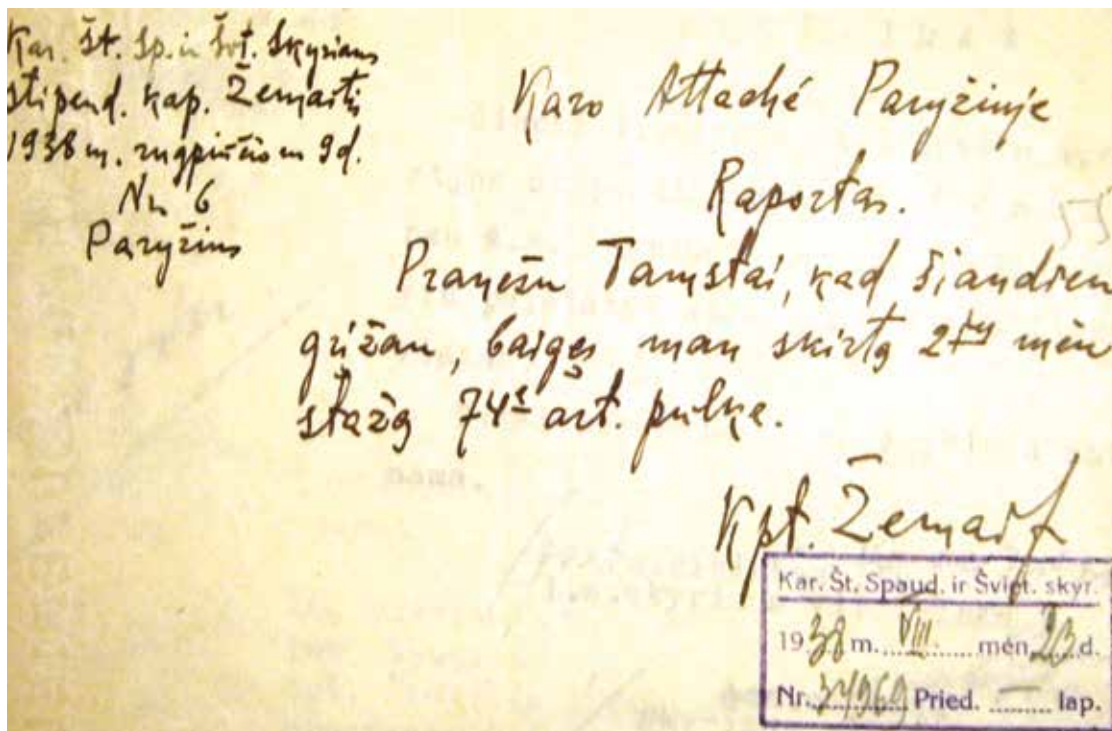 Kar. Št. Sp. ir Švt. Skyriaus
stipend. kap. Žemaitis
1938 m. rugpiūčio m 9 d.
Nr. 6
Paryžius
Karo Attaché Paryžiuje
Raportas.
Pranešu Tamstai, kad šiandien
grįžau, baigęs man skirtą 2jų mėn
stažą 74s art. pulke.
Kpt. Žemait
Kar. Št. Spaud. ir Šviet. skyr.
1938 m. VIII mėn. 23 d.
Nr. Pried. — lap.